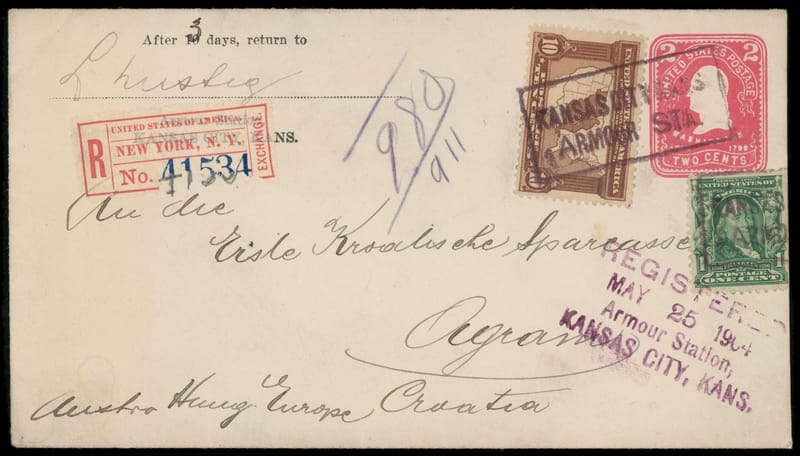 After 3 days, return to
L Lustig
KANSAS CITY, KANS.
R
UNITED STATES OF AMERICA.
NEW YORK, N. Y.
EXCHANGE.
No. 41534
980
911
10
10
KANSAS CITY
ARMOUR STA.
2 2
UNITED STATES POSTAGE
WASH
1799
TWO CENTS
UNITED STATES OF AMERICA
1 1
POSTAGE
ONE CENT
An die
Erste Kroatische Sparcasse
Agram
Austro Hung Europe Croatia
REGISTERED
MAY 25 1904
Armour Station,
KANSAS CITY, KANS.